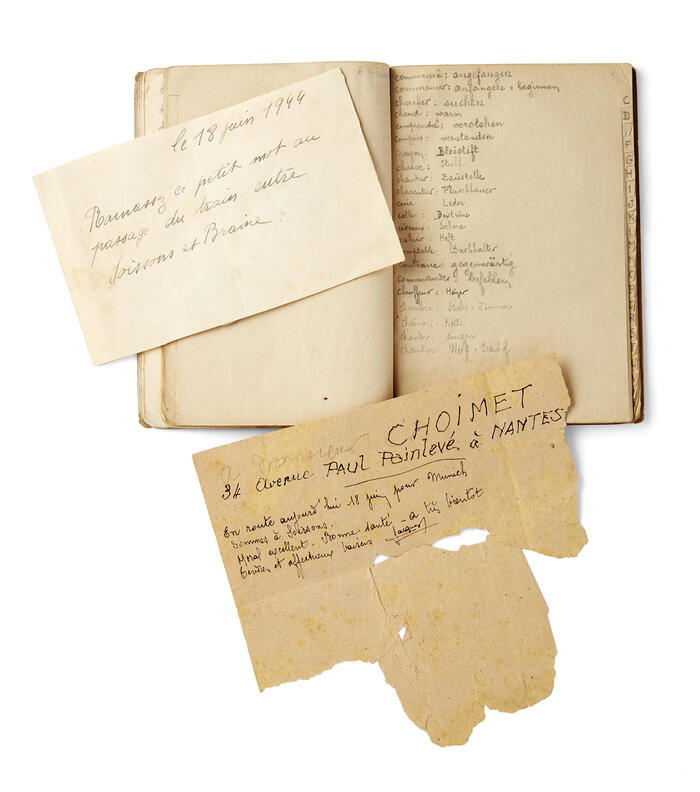 le 18 juin 1944
Ramassez ce petit mot au
passage du train entre
Soissons et Braine.
commencé: angefangen
commencer: anfangen: beginnen
chercher: suchen
chaud: warm
comprendre: verstehen
compris: verstanden
crayon: Bleistift
chaise: Stuhl
chantier: Baustelle
charcutier: Fleischhauer
cuir: Leder
colle:
Sehne
cahier: Heft
comptable: Buchhalter
contraire: gegenwärtig
commander: befehlen
chauffeur: Heizer
chambre: Stube: Zimmer
chaîne: Kette
chanter: singen
chantier: Werft
C
D
F
G
H
I
J
K
CHOIMET
34 avenue PAUL Painlevé à NANTES
En route aujourd'hui 18 juin pour Munich
Sommes à Soissons.
Moral excellent. Bonne santé - à très bientot
tendres et affectueux baisers Jacques